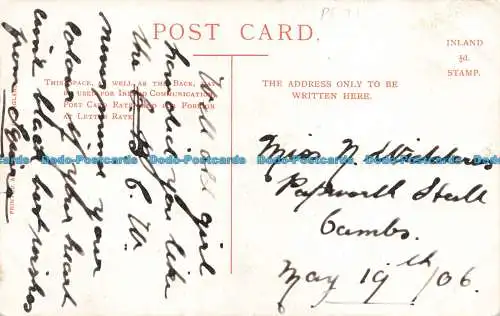 POST CARD.
INLAND
½d.
STAMP.
THIS SPACE, AS WELL AS THE BACK, MAY
BE USED FOR INLAND COMMUNICATION.
POST CARD RATE, AND FOR FOREIGN
AT LETTER RATE.
THE ADDRESS ONLY TO BE
WRITTEN HERE.
Well old girl
how did you like
the
C. W.
never mind your
colour of your heart
best wishes
from
Miss N.
Papworth Hall
Cambs.
May 19th /06.
Dodo-Postcards Dodo-Postcards Dodo-Postcards Dodo-Postcards Dodo-Postcards